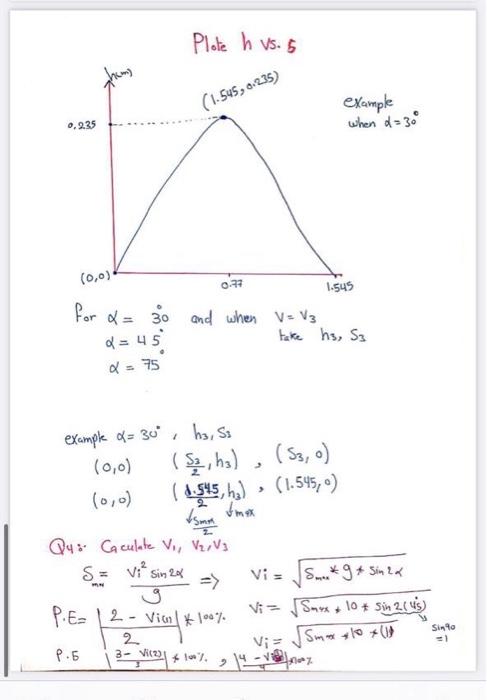 Plote h vs. s
h(m)
(1.545, 0.235)
example
when α = 30°
0,235
(0,0)
0.77
1.545
for α = 30° and when V = V3
α = 45° take h3, S3
α = 75°
example α = 30°, h3, S3
(0,0) (S3/2, h3), (S3, 0)
(0,0) (1.545/2, h3), (1.545, 0)
Smax/2 max
Q4: Caculate V1, V2, V3
S max = Vi² sin 2α / g => Vi = √Smax * g * sin 2α
P.E = |2 - Vi(1)| / 2 * 100% Vi = √Smax * 10 * sin 2(45)
Vi = √Smax * 10 * (1) sin 90 = 1
P.E |3 - Vi(2)| / 3 * 100%, |4 - Vi(3)| / 4 * 100%